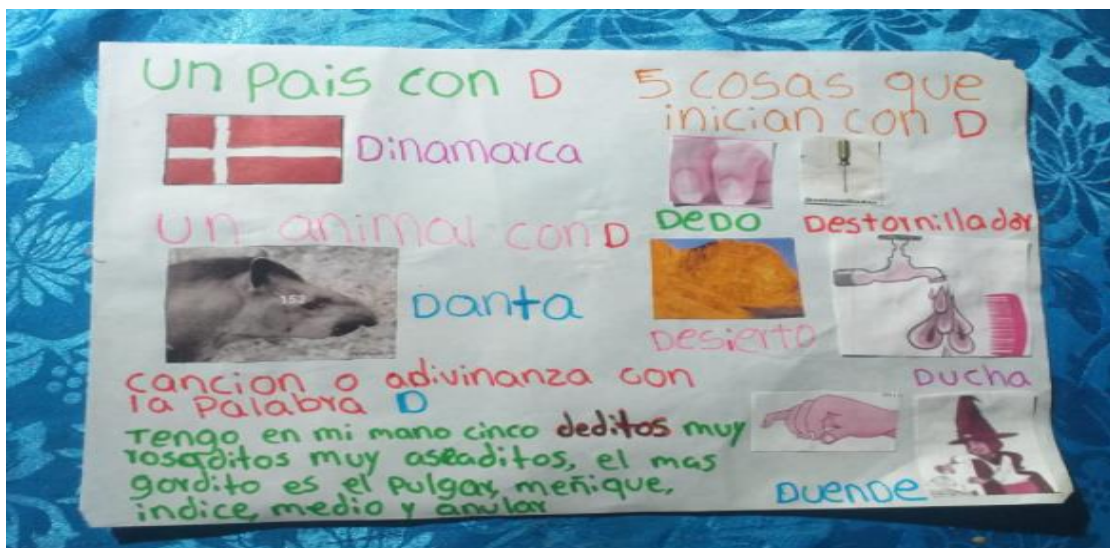 un pais con D
Dinamarca
un animal con D
153
Danta
cancion o adivinanza con
la palabra D
Tengo en mi mano cinco deditos muy
rosaditos muy aseaditos, el mas
gordito es el pulgar, meñique,
indice, medio y anular
5 cosas que
inician con D
DeDo
Destornillador
Desierto
Ducha
Duende